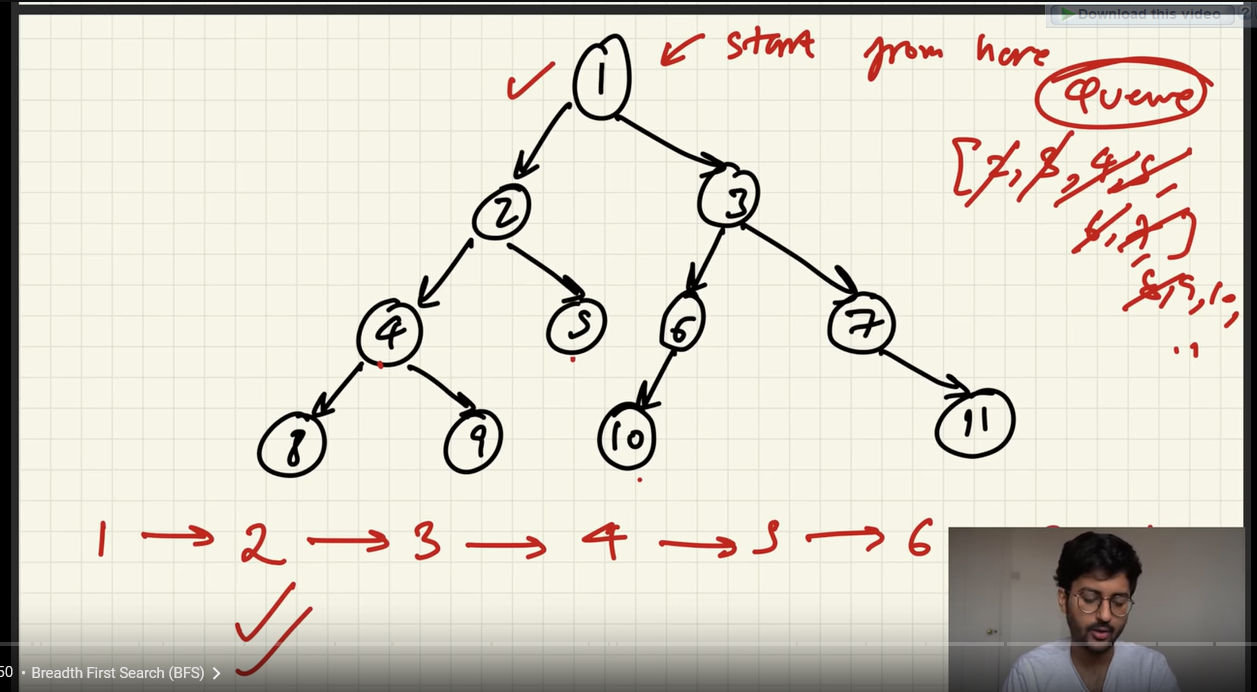 Download this video
start from here
1
Queue
[2, 3, 4, 5,
2
3
6, 7]
8, 9, 10,
4
5
6
7
8
9
10
11
1 → 2 → 3 → 4 → 5 → 6
50 • Breadth First Search (BFS) >